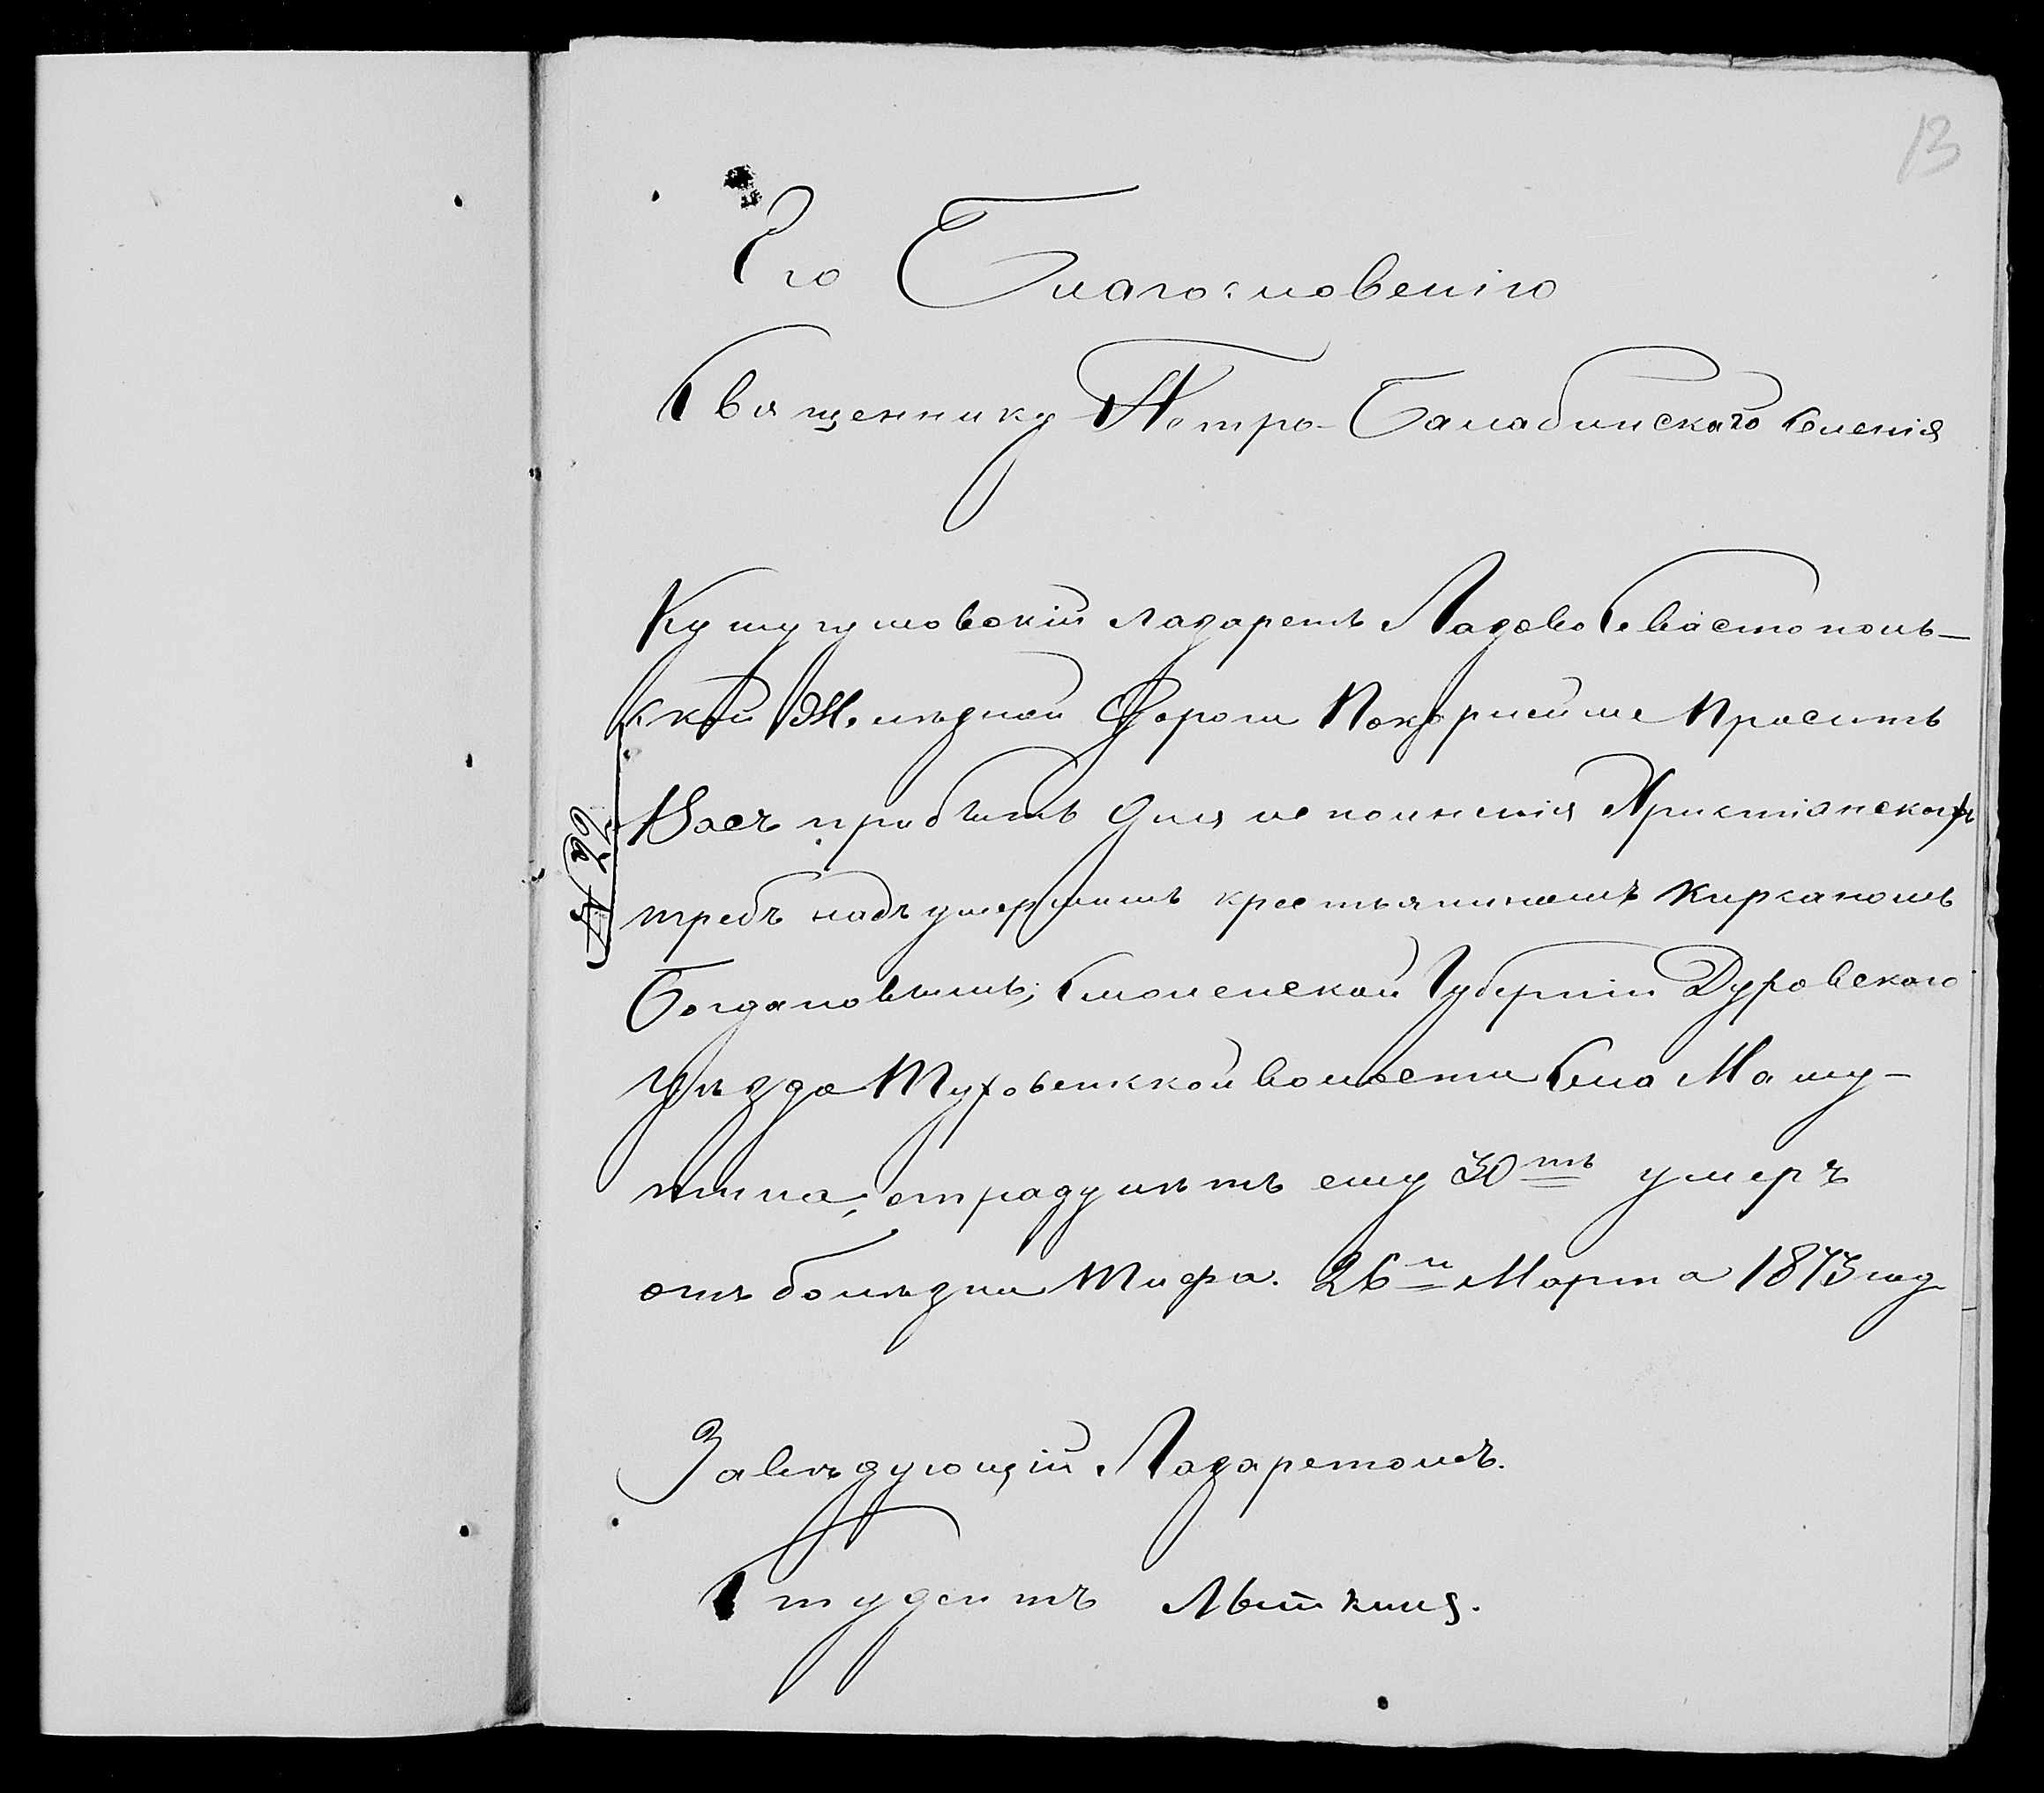 13
Его Благословенію
Священнику Петро-Балабинскаго Селенія
Кушугумовскій лазаретъ Лозово Севастополь-
ской Желѣзной Дороги Покорнейше Проситъ
Васъ прибыть для исполненія Христіанскихъ
требъ надъ умершимъ крестьяниномъ Кирсаномъ
Богдановымъ; Смоленской Губерніи Духовскаго
Уѣзда Туховской волости Села Машу-
тина; отраду лѣтъ ему 30тъ умеръ
отъ болѣзни Тифа. 26го Марта 1873 год
Завѣдующій Лазаретомъ.
Студентъ Лыткинъ.